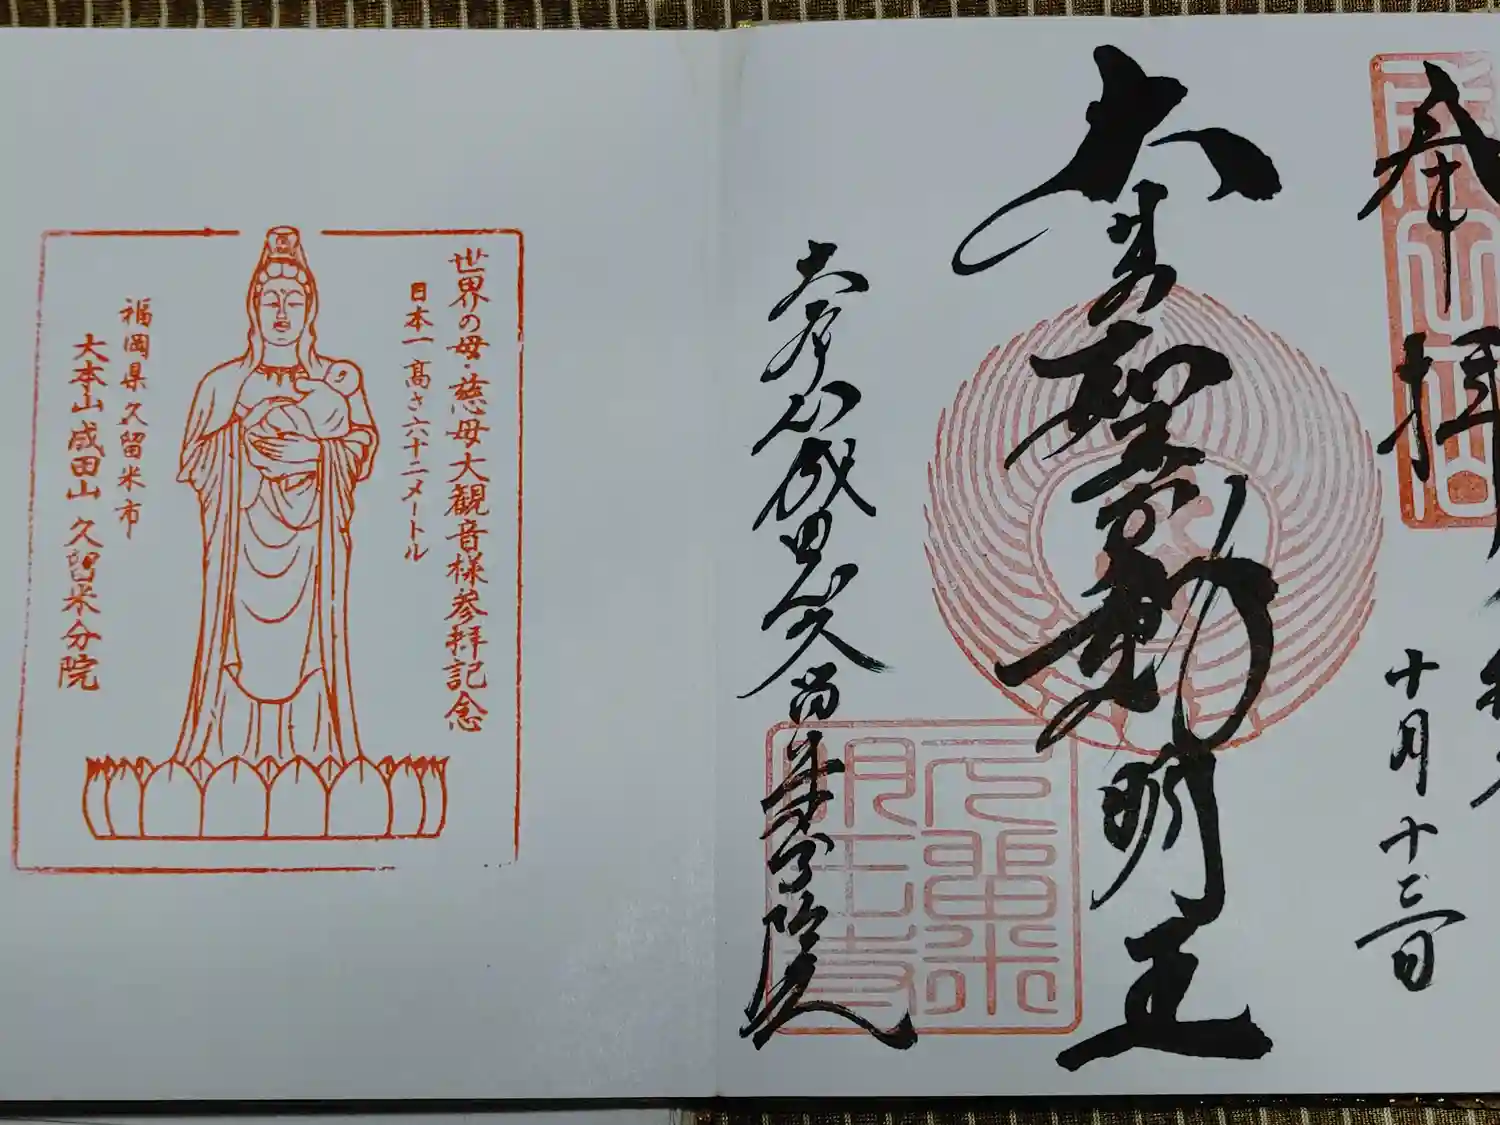 奉拝
十月十三日
大聖不動明王
大本山成田山久留米分院
世界の母・慈母大観音様参拝記念
日本一高さ六十二メートル
福岡県久留米市
大本山成田山 久留米分院